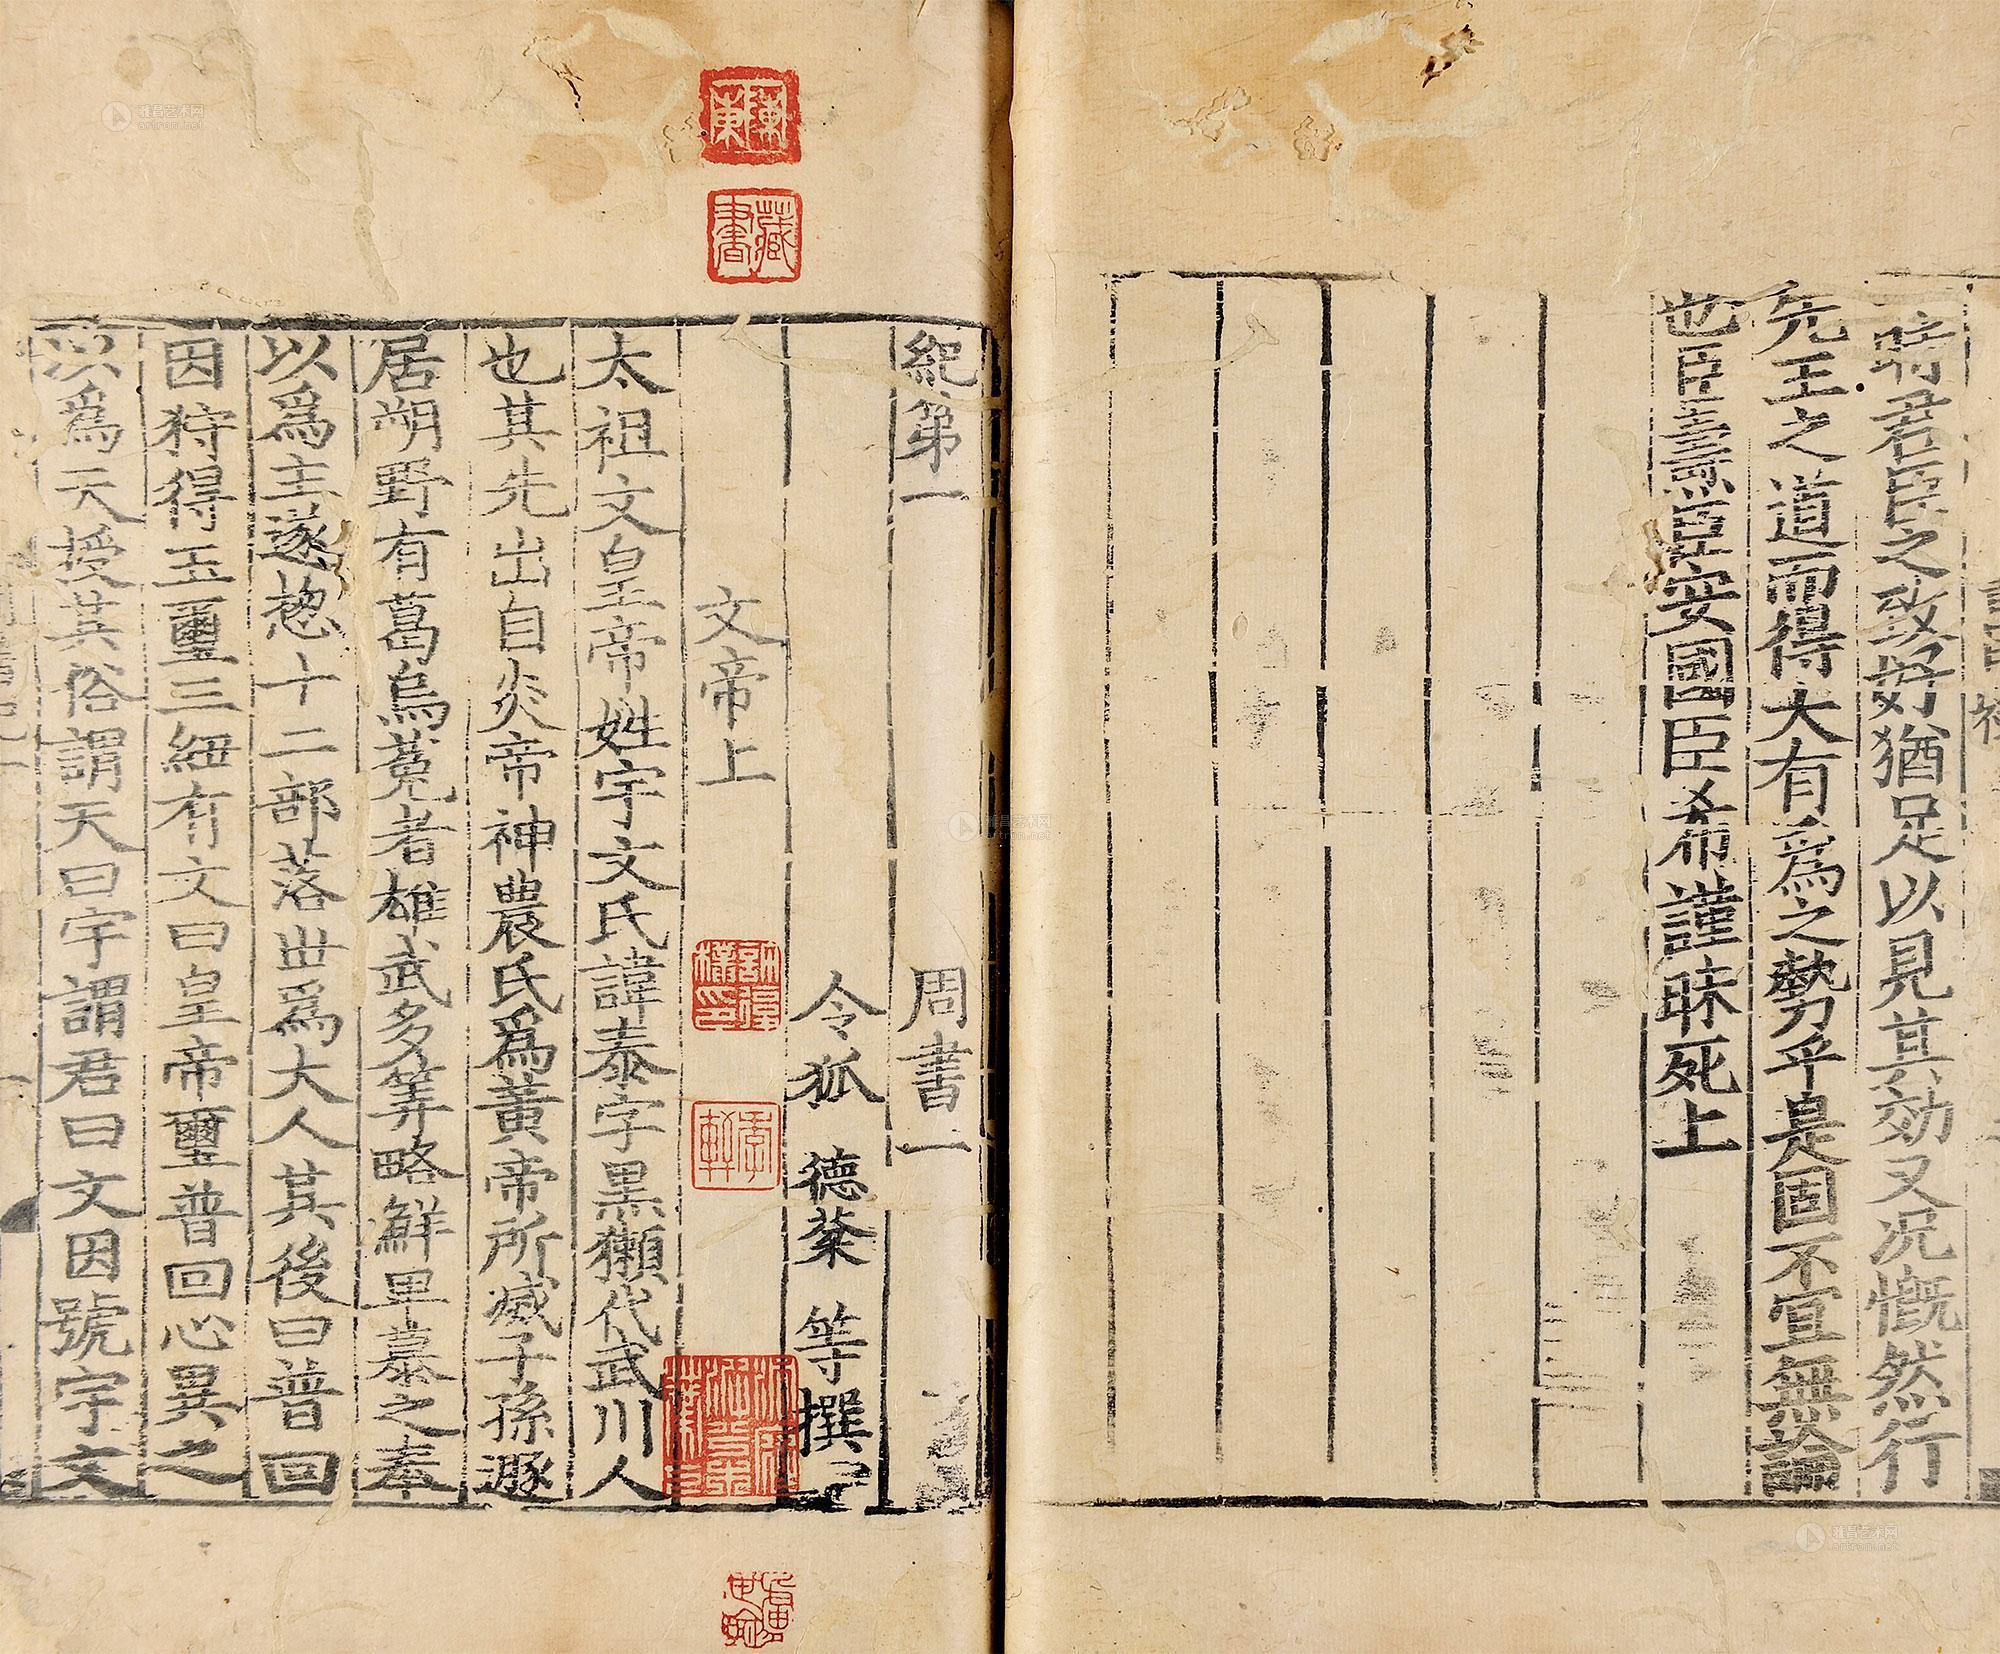 時君臣之致好猶足以見其効又况慨然行
先王之道而得大有爲之勢乎是固不宜無論
也臣燾臣安國臣希謹昧死上
紀第一 周書一
令狐 德棻 等撰
文帝上
太祖文皇帝姓宇文氏諱泰字黑獺代武川人
也其先出自炎帝神農氏爲黃帝所滅子孫遯
居朔野有葛烏菟者雄武多筭略鮮卑慕之奉
以爲主遂揔十二部落世爲大人其後曰普回
因狩得玉璽三紐有文曰皇帝璽普回心異之
以爲天授其俗謂天曰宇謂君曰文因號宇文
藏書